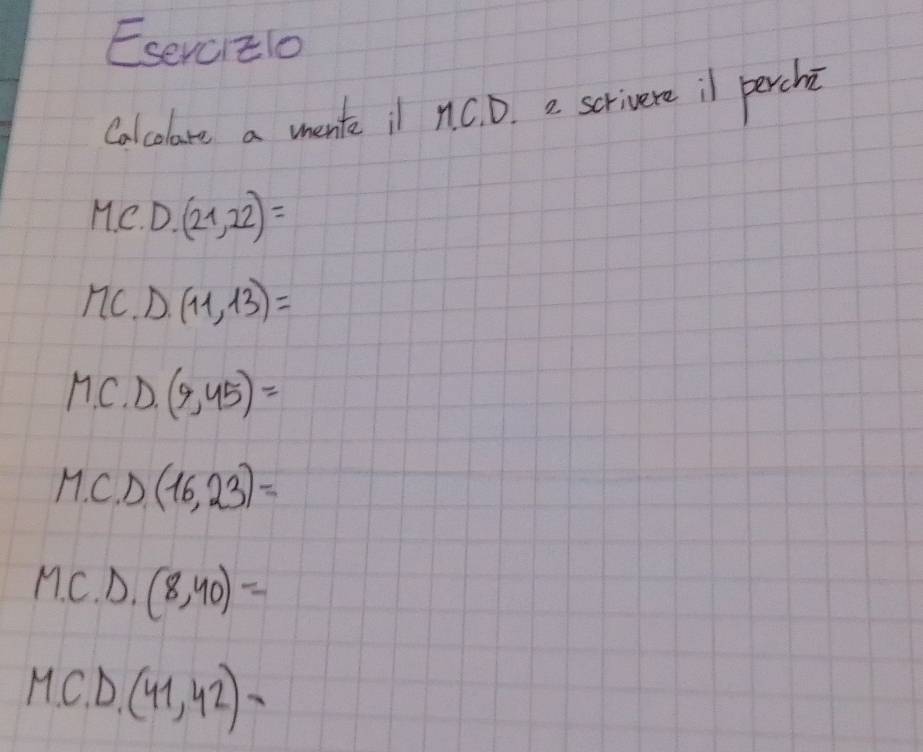 Esercizio
Calcolare a mente il M.C.D. e scrivere il perchè
M.C.D.(21,22)=
M.C.D.(11,13)=
M.C.D.(9,45)=
M.C.D.(16,23)=
M.C.D.(8,40)=
M.C.D.(41,42)=